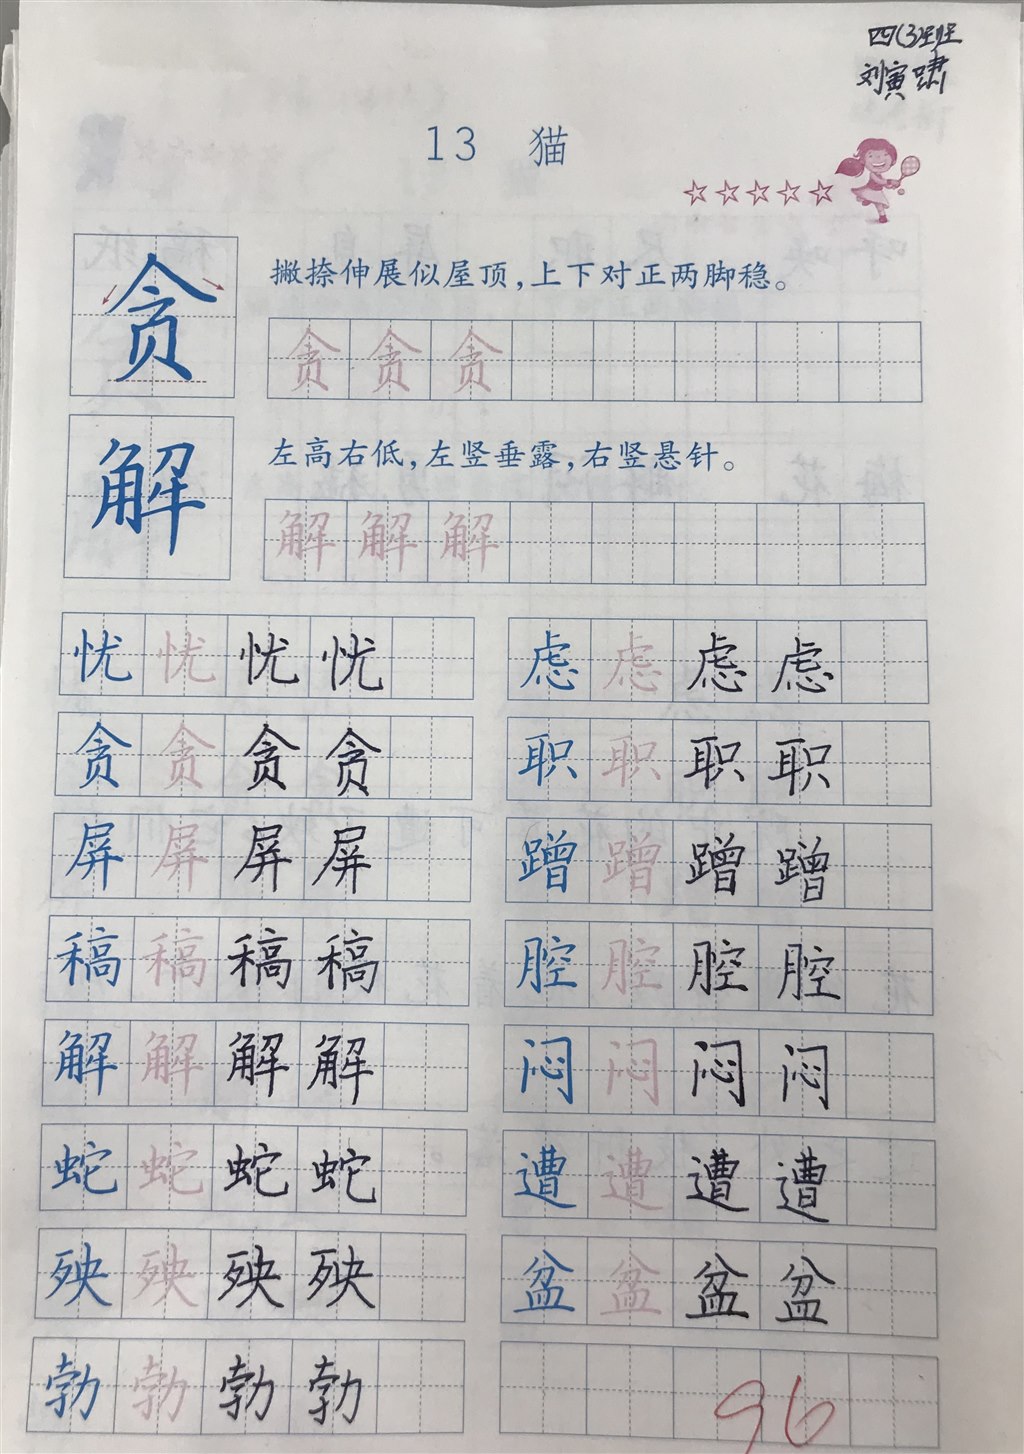 四(3)班
刘寅啸
13 猫
贪 撇捺伸展似屋顶，上下对正两脚稳。
贪 贪 贪
解 左高右低，左竖垂露，右竖悬针。
解 解 解
忧 忧 忧 忧 虑 虑 虑 虑
贪 贪 贪 贪 职 职 职 职
屏 屏 屏 屏 蹭 蹭 蹭 蹭
稿 稿 稿 稿 腔 腔 腔 腔
解 解 解 解 闷 闷 闷 闷
蛇 蛇 蛇 蛇 遭 遭 遭 遭
殃 殃 殃 殃 盆 盆 盆 盆
勃 勃 勃 勃
96